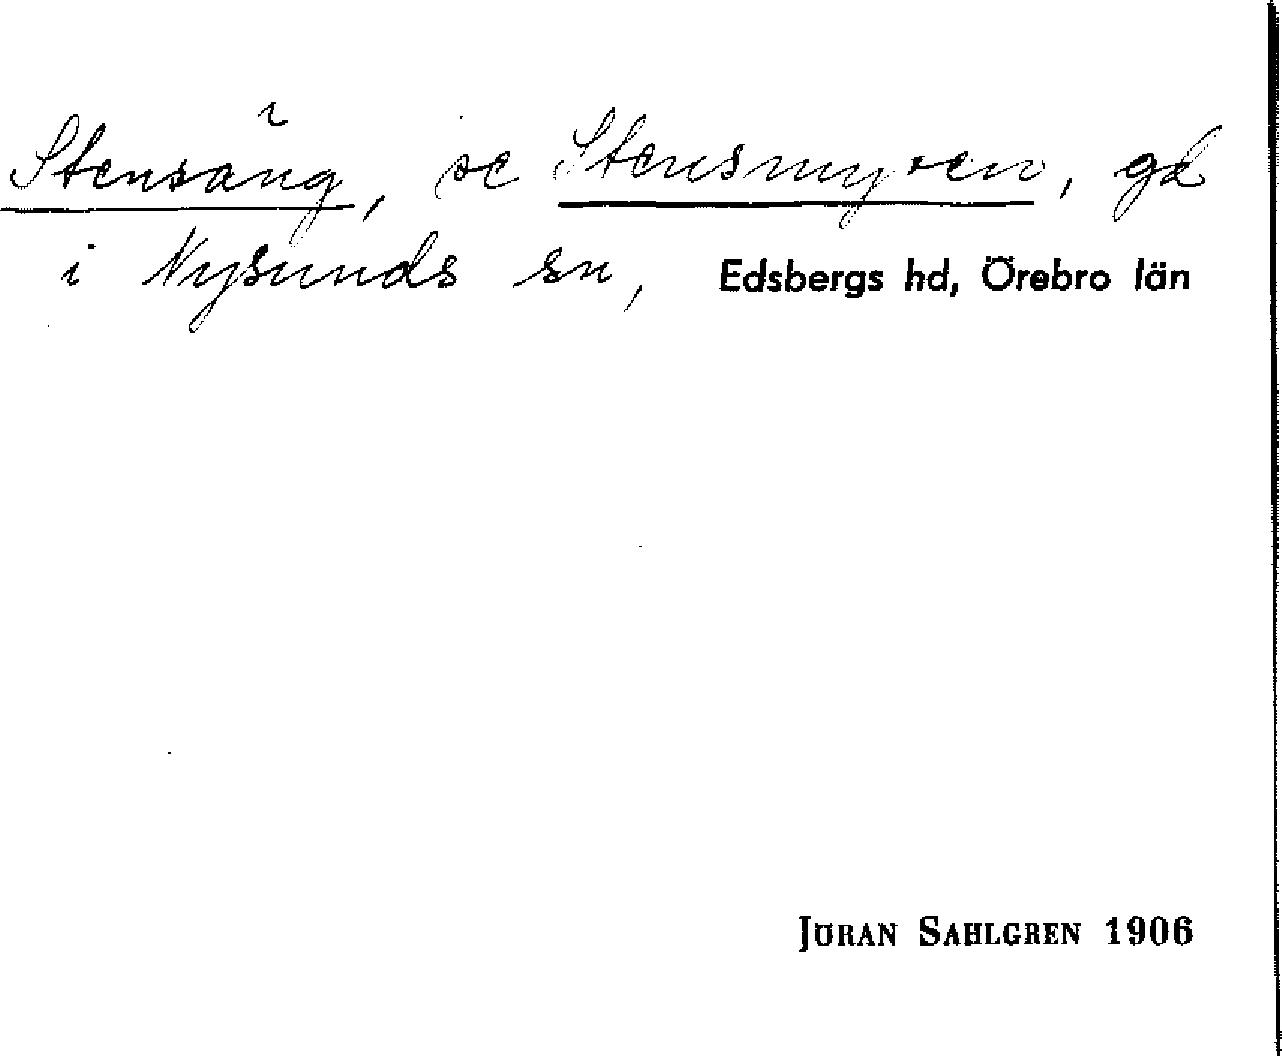 Stensäng, se Stensmyren, gd
i Nysunds sn, Edsbergs hd, Örebro län
JÖRAN SAHLGREN 1906